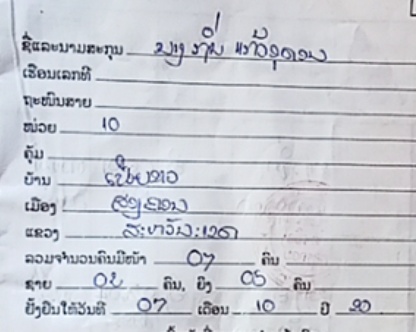 ຊື່ແລະນາມສະກຸນ ນາງ ກິ່ນ ແກ້ວອຸດອນ
ເຮືອນເລກທີ
ຖະໜົນສາຍ
ໜ່ວຍ 10
ຄຸ້ມ
ບ້ານ
ເມືອງ ສອງຄອນ
ແຂວງ ສະຫວັນນະເຂດ
ລວມຈຳນວນຄົນມີໜ້າ 07 ຄົນ
ຊາຍ 02 ຄົນ, ຍິງ 05 ຄົນ
ຢັ້ງຢືນໃຫ້ວັນທີ 07 ເດືອນ 10 ປີ 20